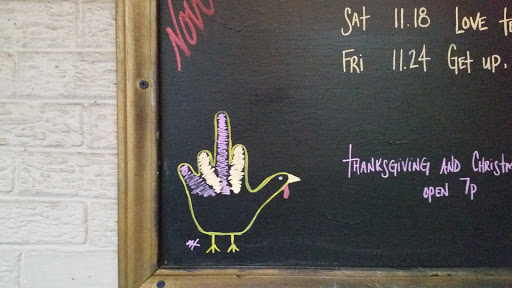 Nov
Sat 11.18 Love
Fri 11.24 Get up,
Thanksgiving and
open 7p